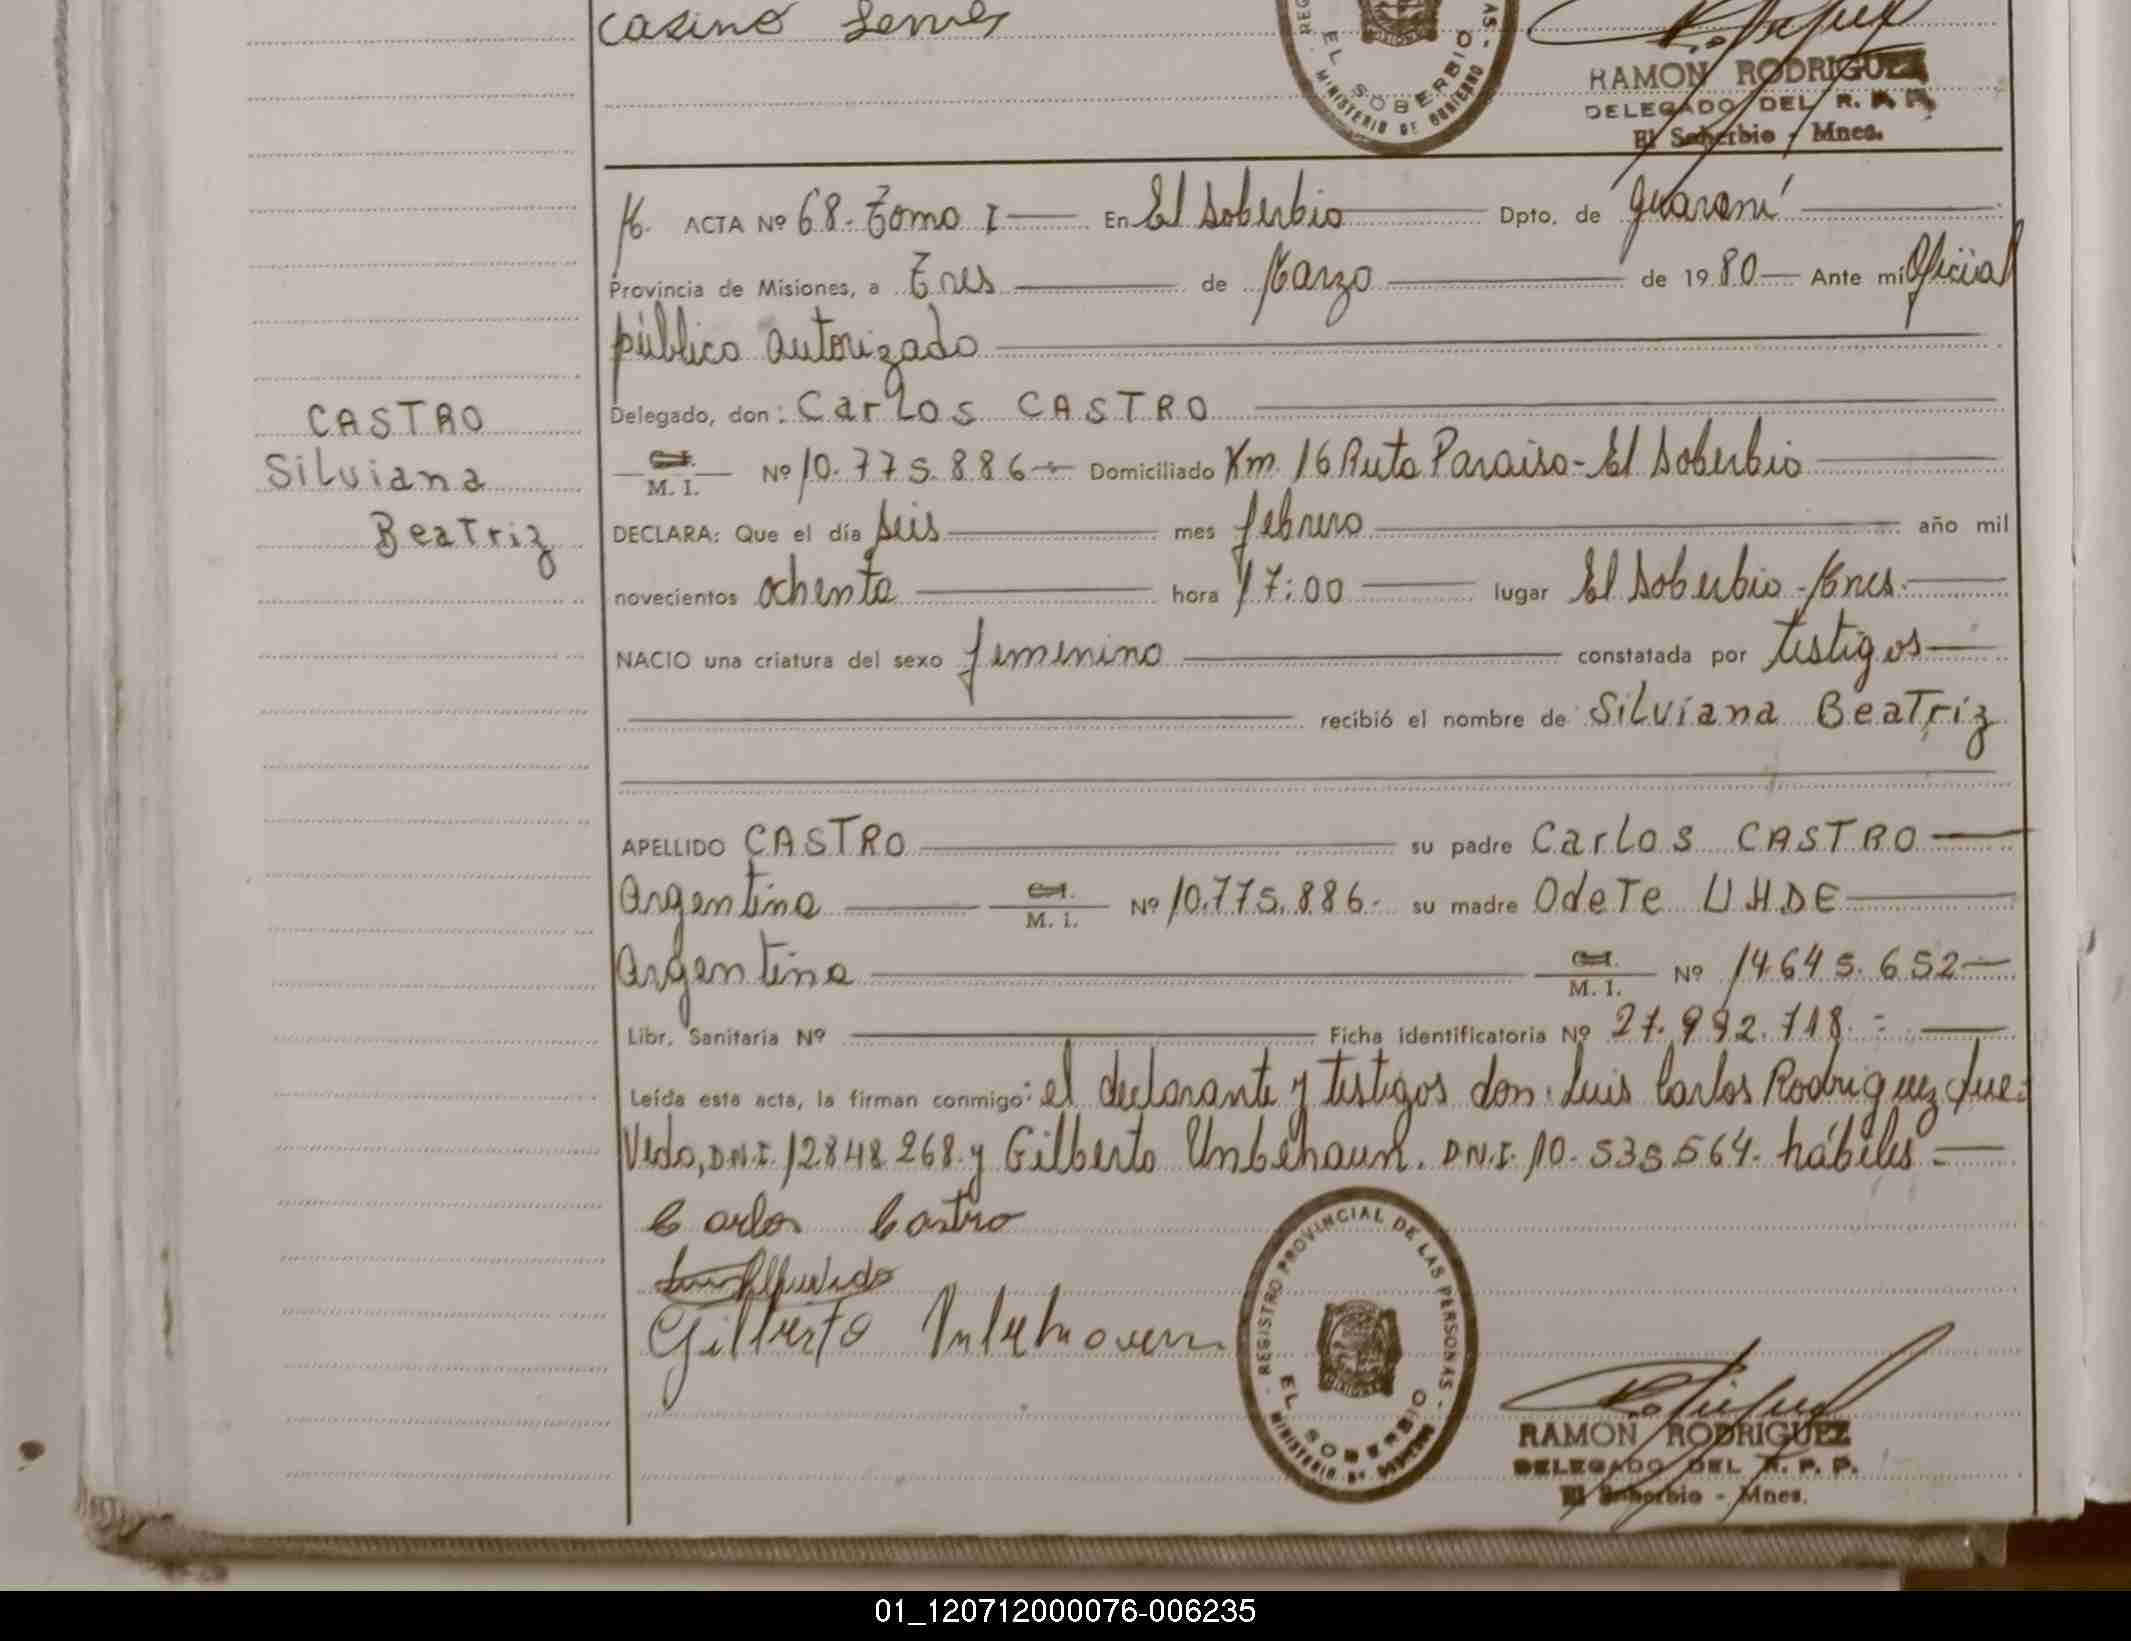 casino
REG
AS -
EL SOBERBIO
MINISTERIO DE GOBIERNO
RAMON RODRIGUEZ
DELEGADO DEL R. P. P.
El Soberbio - Mnes.
ACTA Nº 68. Tomo I En El Soberbio Dpto. de Guaraní
Provincia de Misiones, a Tres de Marzo de 1980 Ante mi Oficial
público autorizado
CASTRO
Silviana
Beatriz
Delegado, don: Carlos CASTRO
C.I. M. I. Nº 10.775.886 Domiciliado Km. 16 Ruta Paraiso - El Soberbio
DECLARA: Que el día seis mes febrero año mil
novecientos ochenta hora 17:00 lugar El Soberbio - Mnes.
NACIO una criatura del sexo femenino constatada por testigos
recibió el nombre de Silviana Beatriz
APELLIDO CASTRO su padre Carlos CASTRO
Argentina C.I. M. I. Nº 10.775.886- su madre Odete UHDE
Argentina C.I. M. I. Nº 14.645.652
Libr. Sanitaria Nº Ficha identificatoria Nº 27.992.718.=
Leída esta acta, la firman conmigo: el declarante y testigos don: Luis Carlos Rodriguez Que=
vedo, D.N.I. 12848268. y Gilberto Unbehaun. D.N.I. 10.535.564. hábiles=
Carlos Castro
Gilberto
REGISTRO PROVINCIAL DE LAS PERSONAS
EL SOBERBIO
MINISTERIO DE GOBIERNO
MISIONES
RAMON RODRIGUEZ
DELEGADO DEL R. P. P.
El Soberbio - Mnes.
01_120712000076-006235